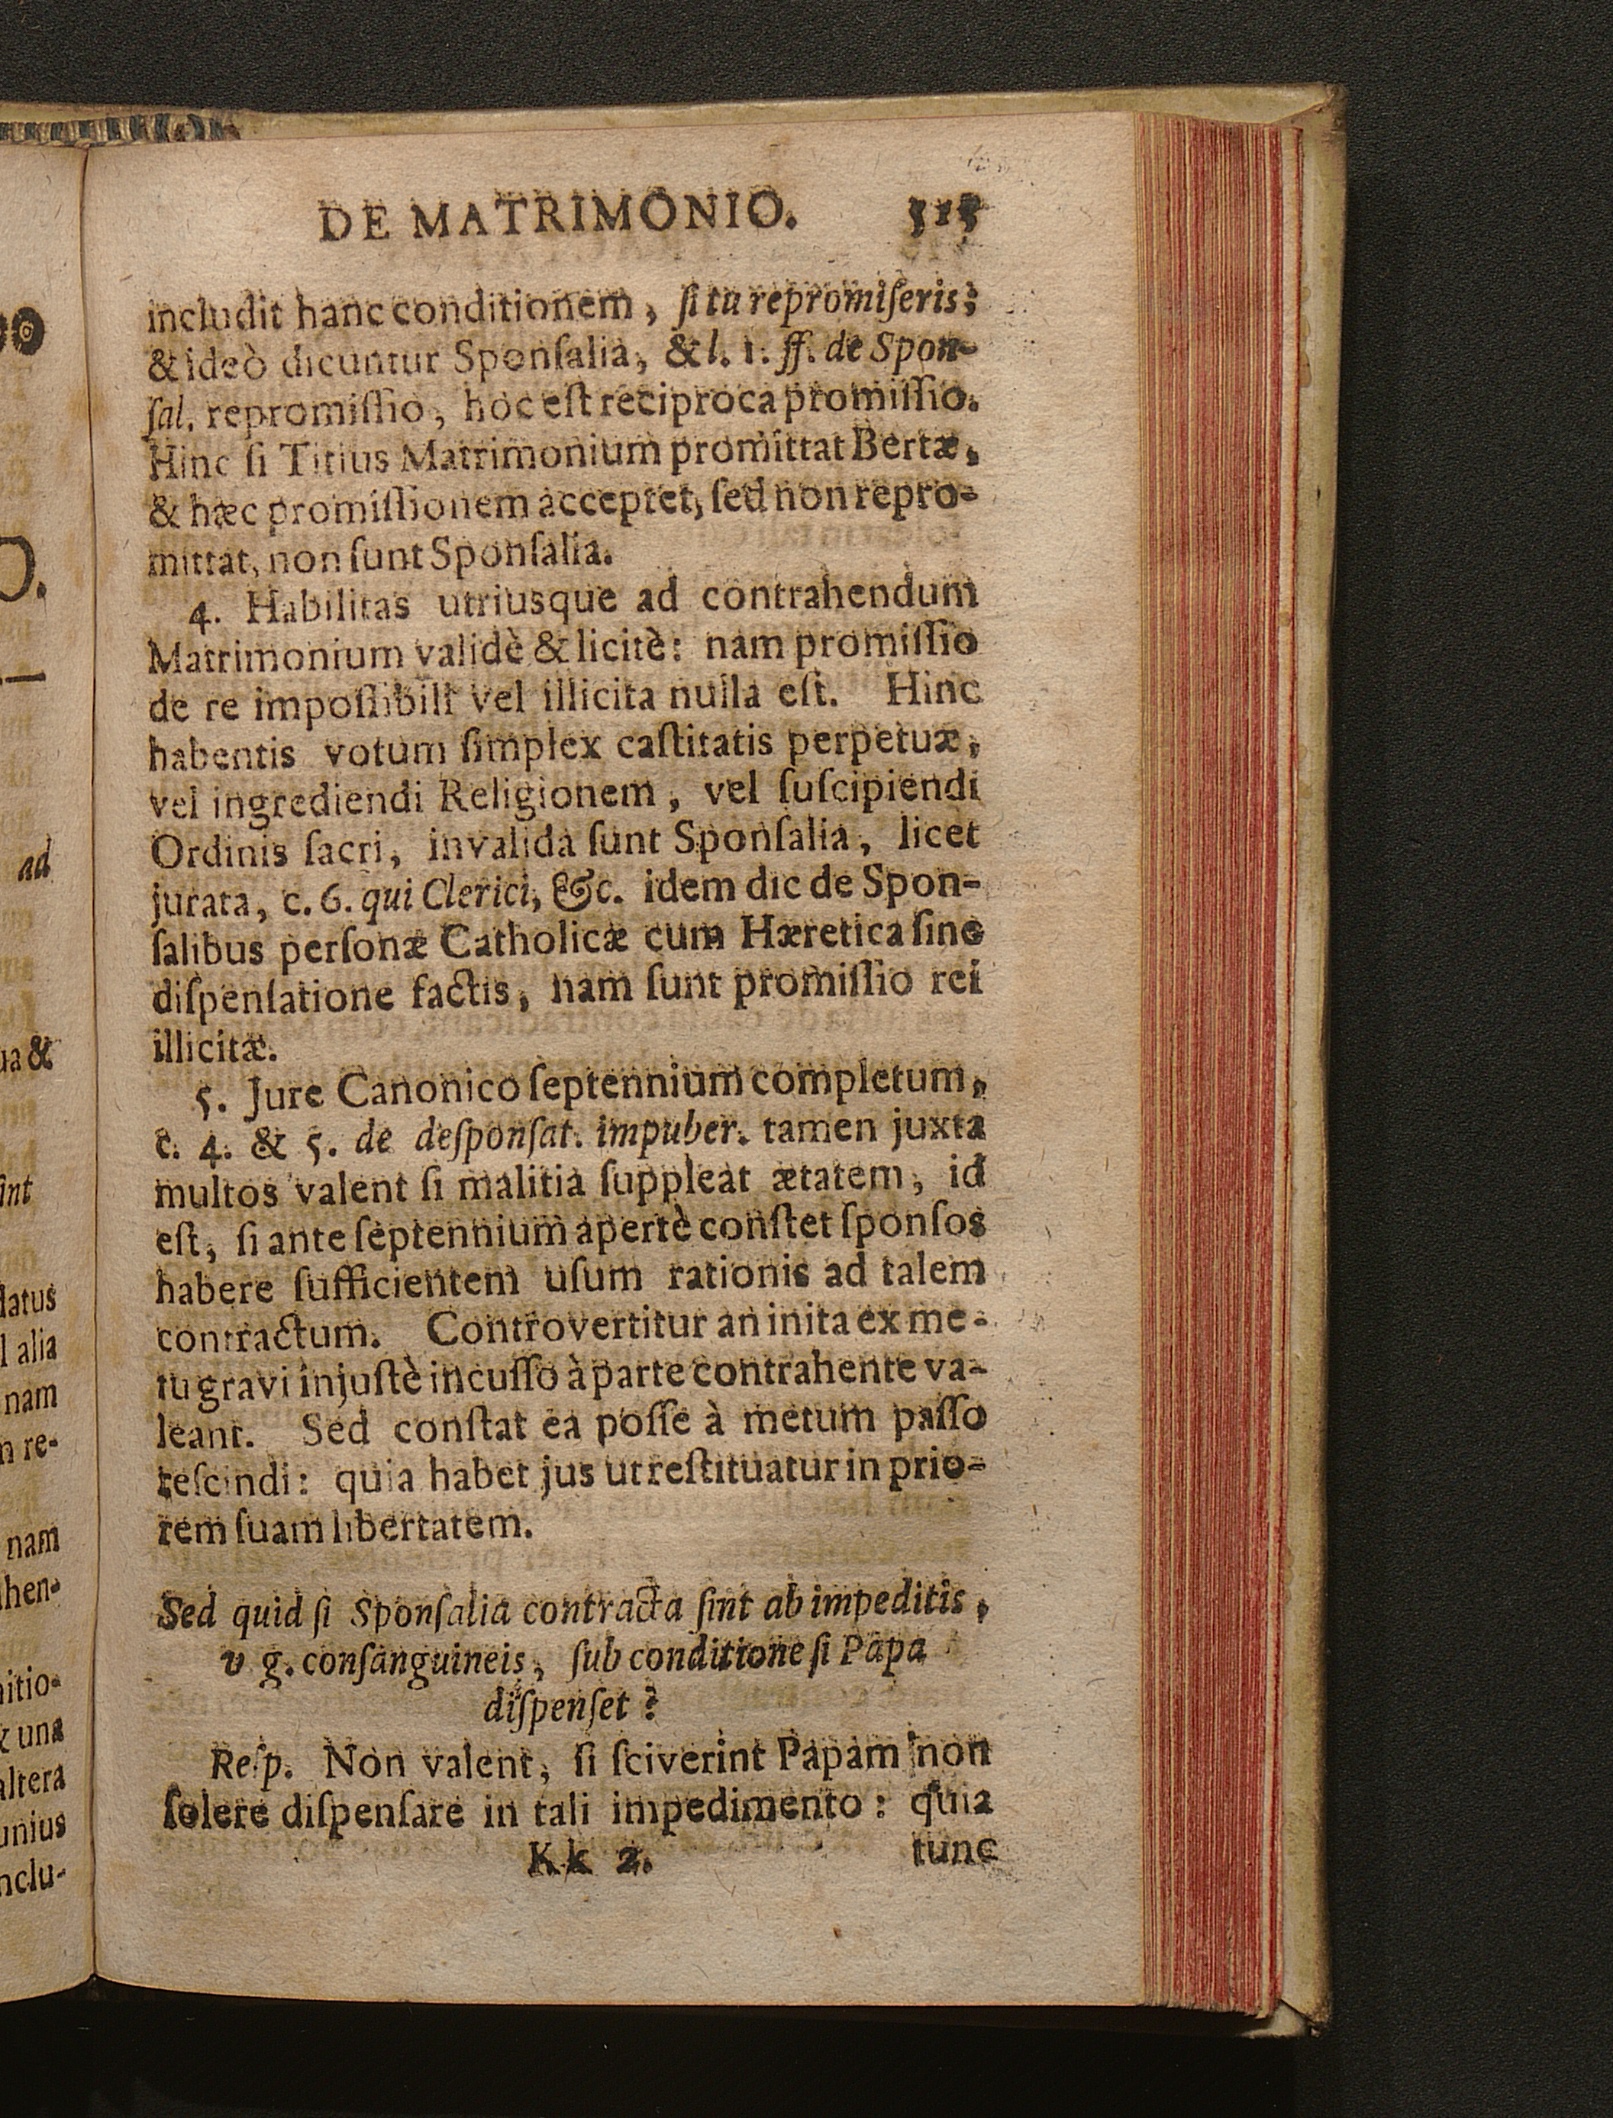 DE MATRIMONIO. 515
includit hanc conditionem, ſi tu repromiſeris;
& ideò dicuntur Sponſalia, & l. 1. ff. de Spon-
ſal. repromiſſio, hoc eſt reciproca promiſſio.
Hinc ſi Titius Matrimonium promittat Bertæ,
& hæc promiſſionem acceptet, ſed non repro-
mittat, non ſunt Sponſalia.
4. Habilitas utriusque ad contrahendum
Matrimonium validè & licitè: nam promiſſio
de re impoſſibili vel illicita nulla eſt. Hinc
habentis votum ſimplex caſtitatis perpetuæ,
vel ingrediendi Religionem, vel ſuſcipiendi
Ordinis ſacri, invalida ſunt Sponſalia, licet
jurata, c. 6. qui Clerici, &c. idem dic de Spon-
ſalibus perſonæ Catholicæ cum Hæretica ſine
diſpenſatione factis, nam ſunt promiſſio rei
illicitæ.
5. Jure Canonico ſeptennium completum,
c. 4. & 5. de deſponſat. impuber. tamen juxta
multos valent ſi malitia ſuppleat ætatem, id
eſt, ſi ante ſeptennium apertè conſtet ſponſos
habere ſufficientem uſum rationis ad talem
contractum. Controvertitur an inita ex me-
tu gravi injuſtè incuſſo à parte contrahente va-
leant. Sed conſtat ea poſſe à metum paſſo
reſcindi: quia habet jus ut reſtituatur in prio-
rem ſuam libertatem.
Sed quid ſi Sponſalia contracta ſint ab impeditis,
v g. conſanguineis, ſub conditione ſi Papa
diſpenſet?
Reſp. Non valent, ſi ſciverint Papam non
ſolere diſpenſare in tali impedimento: quia
Kk 2. tunc